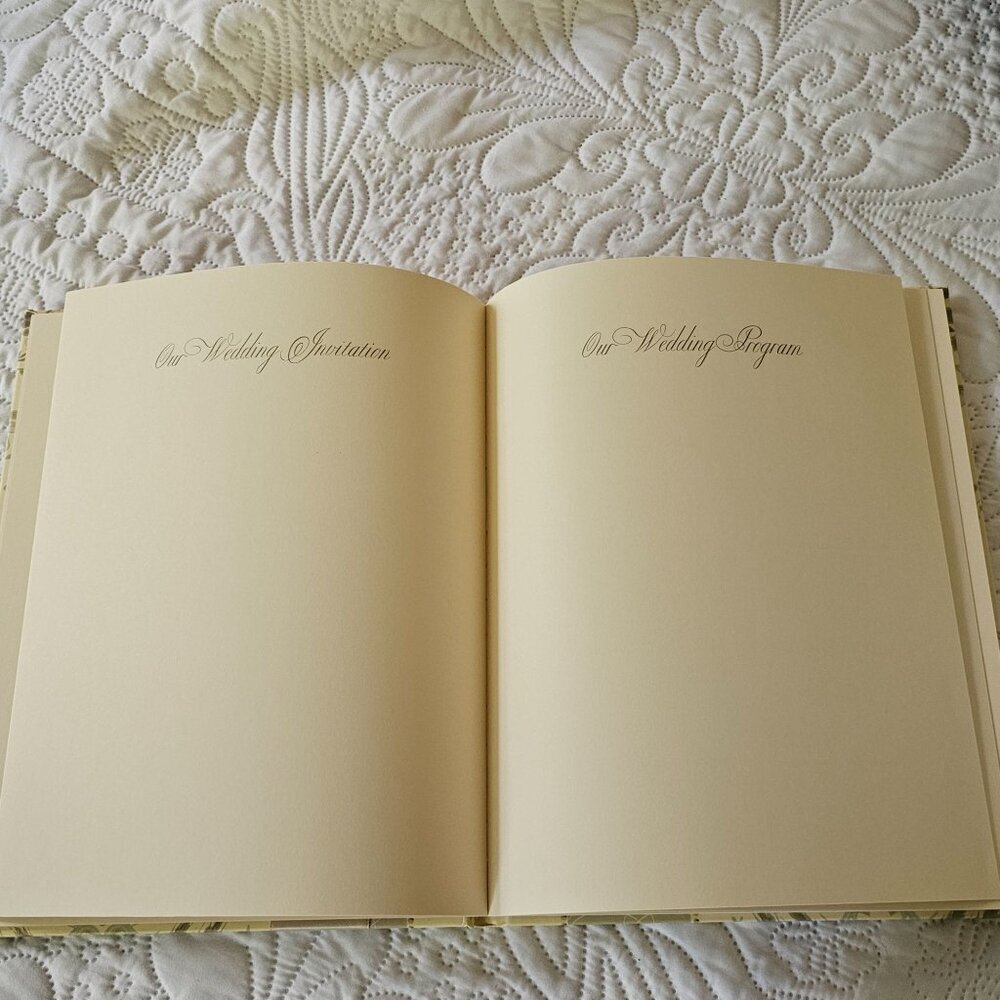 Our Wedding Invitation
Our Wedding Program